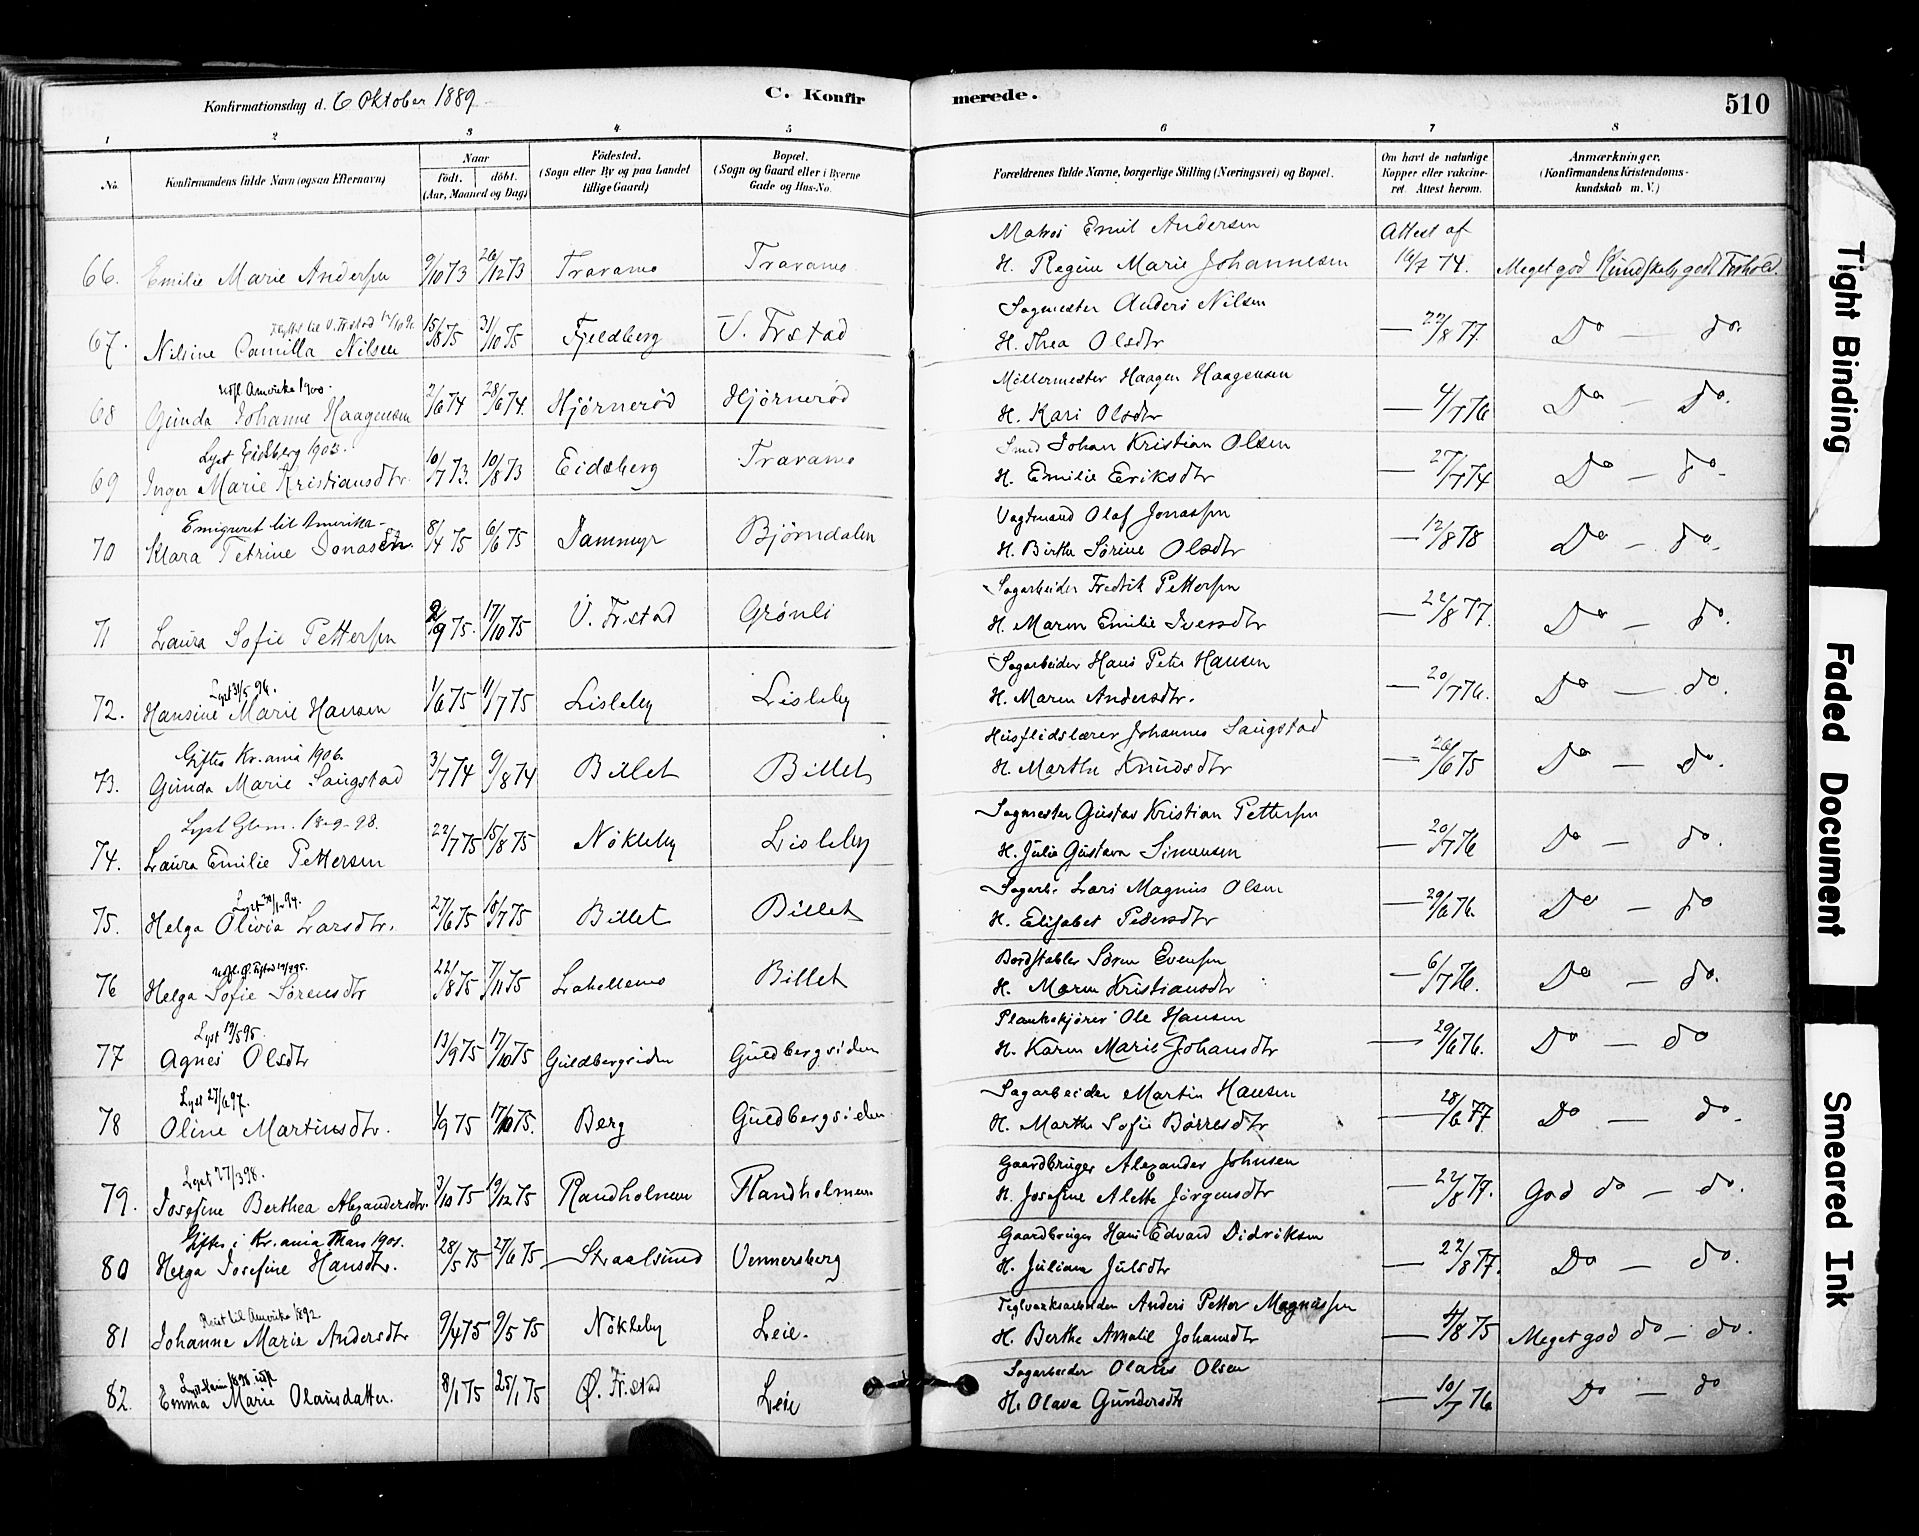 Konfirmationsdag d. 6 Oktober 1889
C. Konfirmerede.
510
1 2 3 4 5 6 7 8
No.
Konfirmandens fulde Navn (ogsaa Efternavn)
Naar
født. døbt.
(Aar, Maaned og Dag)
Fødested.
(Sogn eller By og paa Landet
tillige Gaard)
Bopæl.
(Sogn og Gaard eller i Byerne
Gade og Hus-No.
Forældrenes fulde Navne, borgerlige Stilling (Næringsvei) og Bopæl.
Om havt de naturlige
Kopper eller vakcine-
ret. Attest herom.
Anmærkninger.
(Konfirmandens Kristendoms-
kundskab m. V.)
Matros Emil Andersen Attest af
66. Emilie Marie Andersen 9/10 73 26/12 73 Traramo Traramo H. Regine Marie Johannesen 16/7 74. Meget god Kundskab, godt Forhold.
Flyttet til V. Frstad Sagmester Anders Nilsen
67. Nilsine Camilla Nilsen 15/8 75 31/10 75 Fjeldberg V. Frstad H. Thea Olsdtr — 22/8 77. Do — do.
Udfl. Amerika 1900. Møllermester Haagen Haagensen
68 Gunda Johanne Haagensen 2/6 74 28/6 74. Hjørnerød Hjørnerød H. Kari Olsdtr — 4/7 76 Do — Do.
Lyst Eidsberg 1903. Smed Johan Kristian Olsen
69 Inger Marie Kristiansdtr. 10/7 73. 10/8 73 Eidsberg Traramo H. Emilie Eriksdtr — 27/7 74 Do — do.
Emigreret til Amerika Vagtmand Olaf Jonassen
70 Klara Petrine Jonasen. 8/4 75 6/6 75 Dammyr Bjørndalen H. Birthe Sørine Olsdtr — 12/8 78 Do — do.
Sagarbeider Fredrik Pettersen
71 Laura Sofie Pettersen 2/9 75. 17/10 75 V. Fr.stad Grønli H. Maren Emilie Iversdtr — 22/8 77. Do — do.
Lyst 31/5 96. Sagarbeider Hans Peter Hansen
72. Hansine Marie Hansen 1/6 75 11/7 75 Lisleby Lisleby H. Maren Andersdtr. — 20/7 76. Do — do.
Giftes Kr.ania 1906. Husflidslærer Johannes Saugstad
73. Gunda Marie Saugstad 3/7 74 9/8 74 Billet Billet H. Marthe Knudsdtr — 26/6 75 Do — do.
Lyst Glem. 18-9-98. Sagmester Gustav Kristian Pettersen
74. Laura Emilie Pettersen 22/7 75 15/8 75 Nökleby Lisleby H. Julie Gustava Simensen — 20/7 76 Do — do.
Lyst Sagarb. Lars Magnus Olsen
75. Helga Olivia Larsdtr. 27/6 75 18/7 75 Billet Billet H. Elisabet Pedersdtr — 29/6 76. Do — do
Bordstabler Søren Evensen
76 Helga Sofie Sørensdtr 22/8 75 7/11 75 Labellemo Billet H. Maren Kristiansdtr — 6/7 76. Do — do.
Lyst 19/5 95. Plankekjører Ole Hansen
77 Agnes Olsdtr 13/9 75 17/10 75 Guldbergsiden Guldbergsiden H. Karen Marie Johansdtr — 29/6 76. Do — do
Lyst 27/6 97. Sagarbeider Martin Hansen
78 Oline Martinsdtr. 1/9 75 17/10 75. Berg Guldbergsiden H. Marthe Sofie Börresdtr — 28/6 77 Do — do.
Lyst 27/3 98. Gaardbruger Alexander Johnsen
79. Josefine Berthea Alexandersdtr. 3/10 75 19/12 75 Randholmen Randholmen H. Josefine Alette Jörgensdtr — 22/8 77. God do — do.
Giftes i Kr.ania Mars 1901. Gaardbruger Hans Edvard Didriksen
80 Helga Josefine Hansdtr. 28/5 75 27/6 75 Straalsund Vennersberg H. Juliane Julsdtr — 22/8 77. Do — do.
Reist til Amerika 1892 Teglværksarbeider Anders Petter Magnussen
81 Johanne Marie Andersdtr 9/4 75 9/5 75 Nökleby Leie. H. Berthe Amalie Johansdtr — 4/8 75 Meget god do — do.
Sagarbeider Olaus Olsen
82. Emma Marie Olausdatter. 8/1 75 25/1 75 Ø. Fr.stad Leie H. Olava Gundersdtr — 10/7 76. Do — do
Tight Binding
Faded Document
Smeared Ink